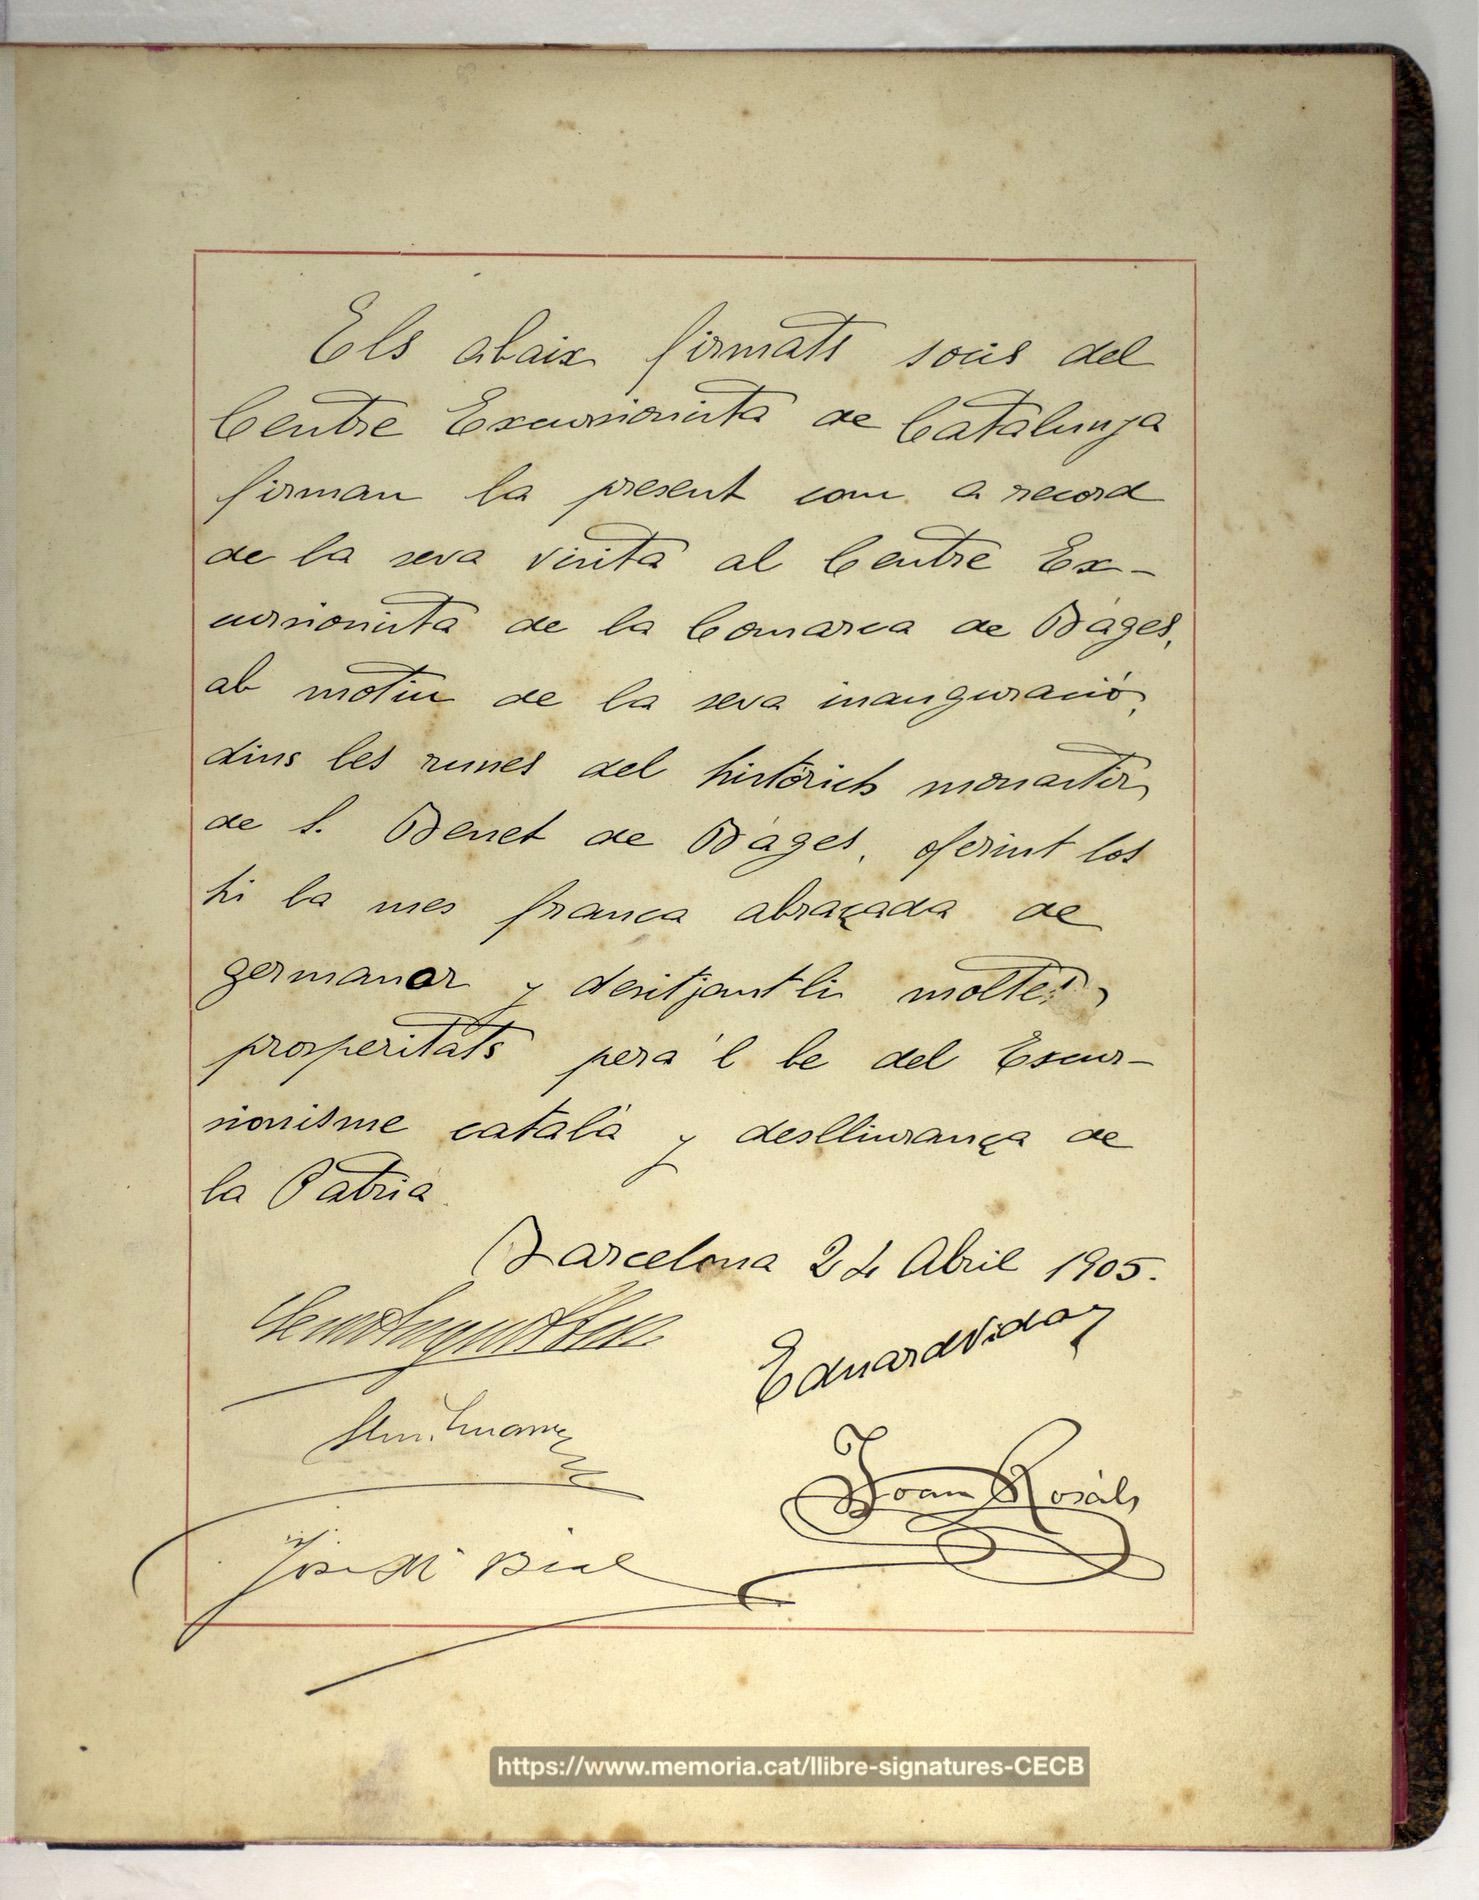 Els abaix firmats socis del
Centre Excursionista de Catalunya
firman la present com a record
de la seva visita al Centre Ex-
cursionista de la Comarca de Bàges,
ab motiu de la seva inauguració,
dins les runes del històrich monastir
de S. Benet de Bàges, oferint los
hi la mes franca abraçada de
germanor y desitjantli moltes
prosperitats pera 'l be del Excur-
sionisme català y deslliurança de
la Patria.
Barcelona 24 Abril 1905.
Eduard Vidal
Joan Rosàls
Josep Mª Bial
https://www.memoria.cat/llibre-signatures-CECB